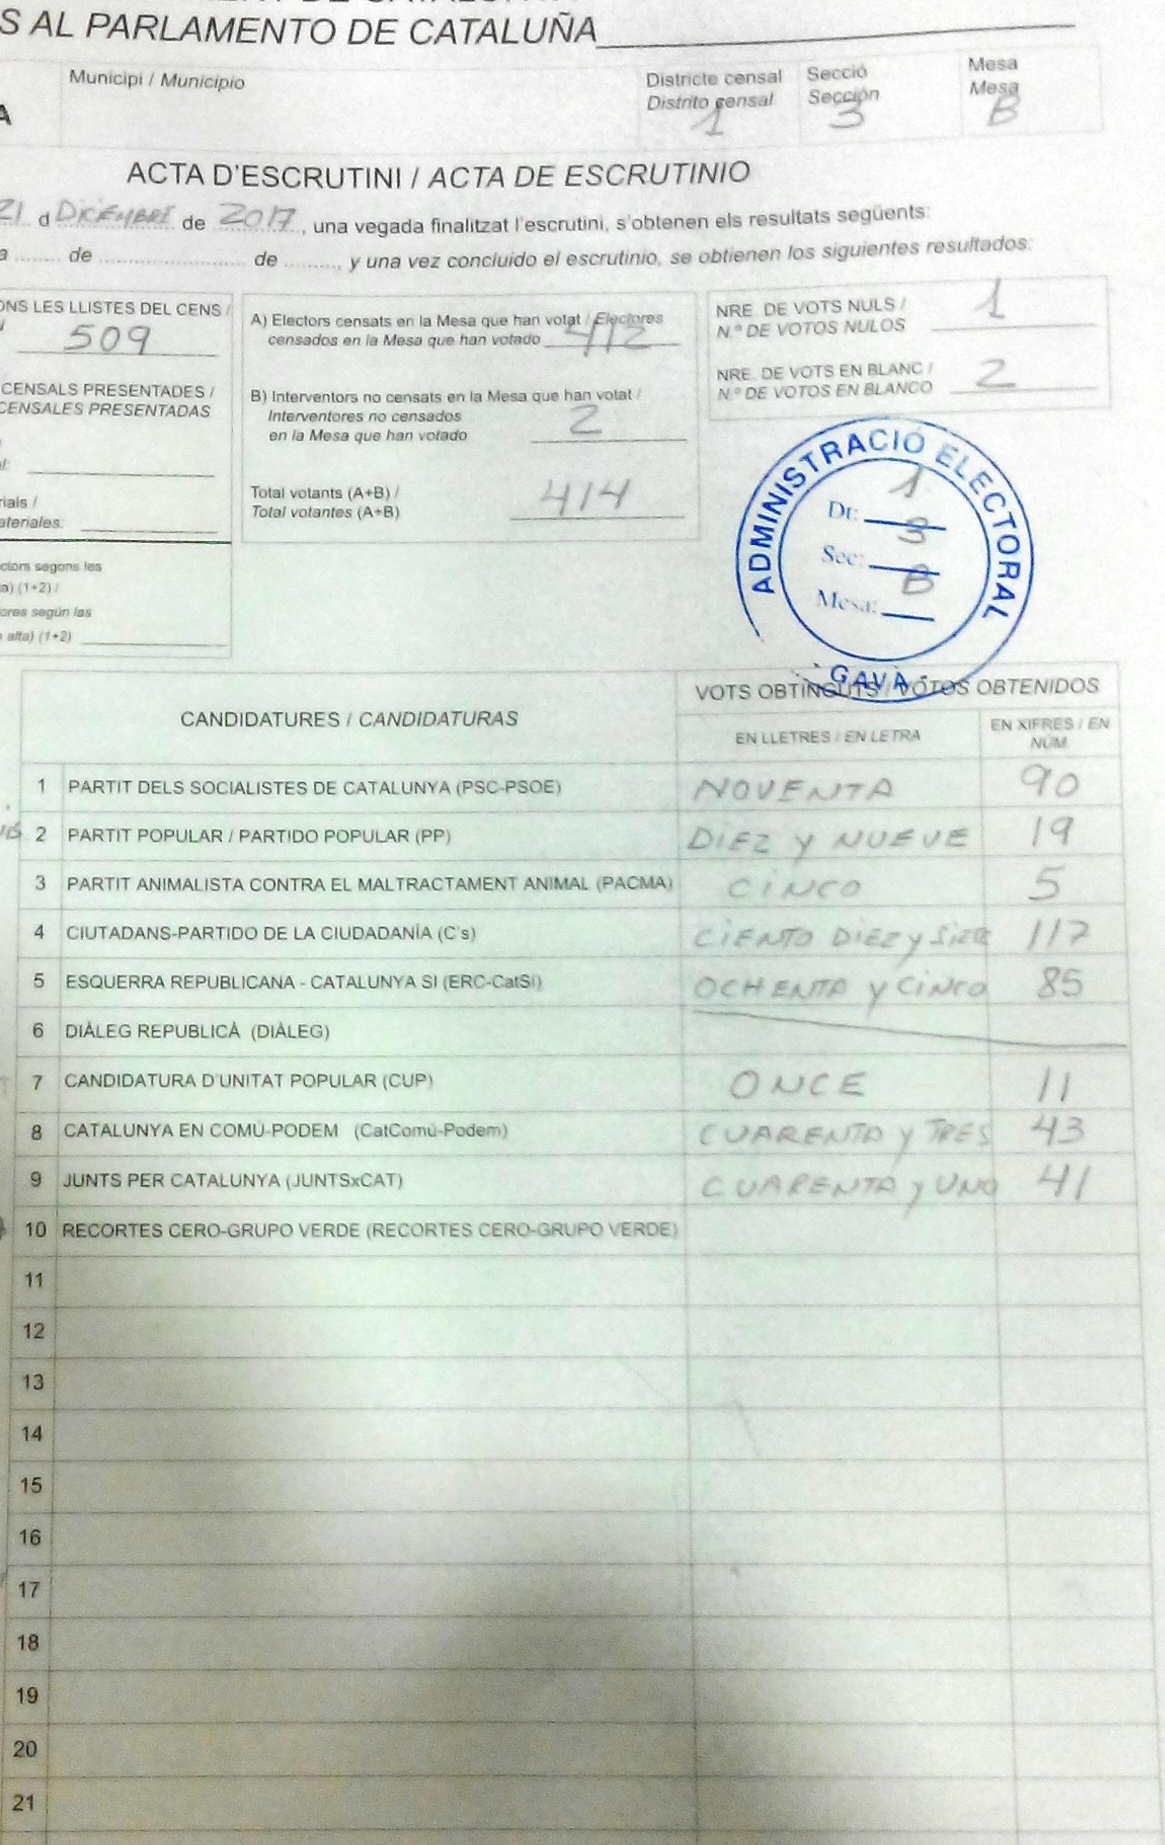 S AL PARLAMENTO DE CATALUÑA
Municipi / Municipio
Districte censal
Distrito censal
1
Secció
Sección
3
Mesa
Mesa
B
A
ACTA D'ESCRUTINI / ACTA DE ESCRUTINIO
21 d DICIEMBRE de 2017, una vegada finalitzat l'escrutini, s'obtenen els resultats següents:
a ........ de ........................ de ........., y una vez concluido el escrutinio, se obtienen los siguientes resultados:
ONS LES LLISTES DEL CENS /
509
CENSALS PRESENTADES /
CENSALES PRESENTADAS
rials /
ateriales:
ctors segons les
a) (1+2) /
ores según las
alta) (1+2)
A) Electors censats en la Mesa que han votat / Electores
censados en la Mesa que han votado 412
B) Interventors no censats en la Mesa que han votat /
Interventores no censados
en la Mesa que han votado 2
Total votants (A+B) /
Total votantes (A+B) 414
NRE. DE VOTS NULS /
N.º DE VOTOS NULOS 1
NRE. DE VOTS EN BLANC /
N.º DE VOTOS EN BLANCO 2
ADMINISTRACIÓ ELECTORAL
Dt: 1
Sec: 3
Mesa: B
GAVÀ
CANDIDATURES / CANDIDATURAS
VOTS OBTINGUTS / VOTOS OBTENIDOS
EN LLETRES / EN LETRA
EN XIFRES / EN
NÚM.
1 PARTIT DELS SOCIALISTES DE CATALUNYA (PSC-PSOE) NOVENTA 90
2 PARTIT POPULAR / PARTIDO POPULAR (PP) DIEZ y NUEVE 19
3 PARTIT ANIMALISTA CONTRA EL MALTRACTAMENT ANIMAL (PACMA) CINCO 5
4 CIUTADANS-PARTIDO DE LA CIUDADANÍA (C's) CIENTO DIEZ y SIETE 117
5 ESQUERRA REPUBLICANA - CATALUNYA SI (ERC-CatSí) OCHENTA y CINCO 85
6 DIÀLEG REPUBLICÀ (DIÀLEG)
7 CANDIDATURA D'UNITAT POPULAR (CUP) ONCE 11
8 CATALUNYA EN COMÚ-PODEM (CatComú-Podem) CUARENTA y TRES 43
9 JUNTS PER CATALUNYA (JUNTSxCAT) CUARENTA y UNO 41
10 RECORTES CERO-GRUPO VERDE (RECORTES CERO-GRUPO VERDE)
11
12
13
14
15
16
17
18
19
20
21